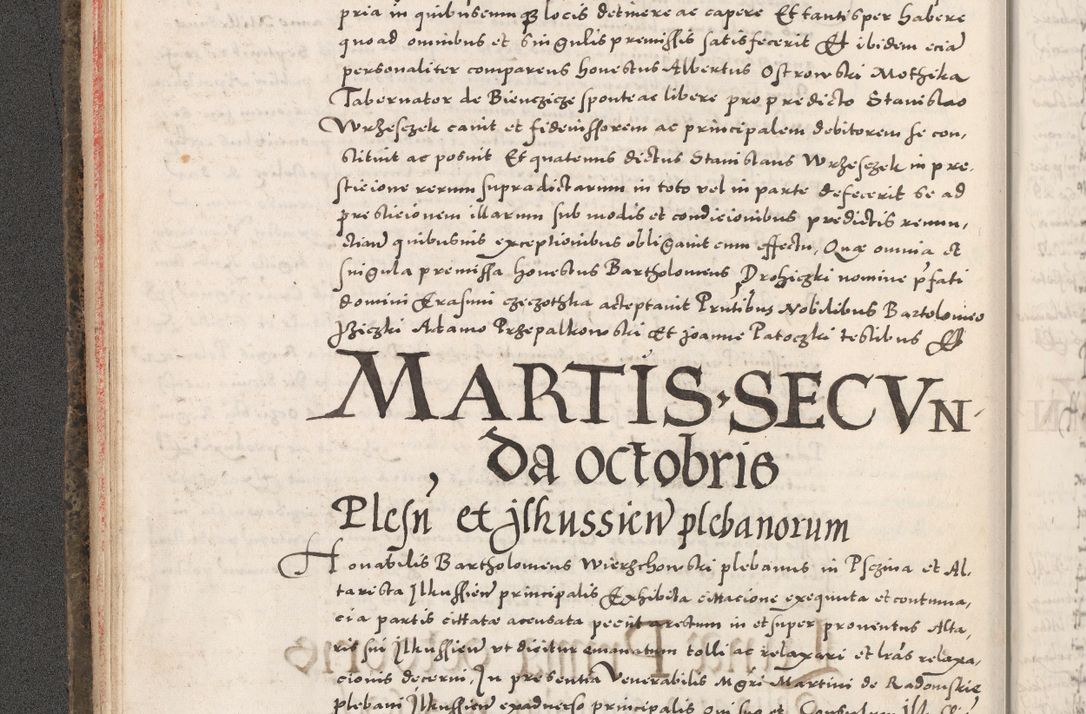 pria in quibuscumqȝ locis detinere ac capere Et tantisper habere
quoad omnibus et singulis premissis satisfecerit Et ibidem eciã
personaliter comparens honestus Albertus Ostrowski Mothika
Tabernator de Bienczicze sponte ac libere pro predicto Stanislao
Wrzesczek cavit et fideiussorem ac principalem debitorem se con,
stituit ac posuit Et quatenus dictus Stanislaus Wrzesczek in pre,
sticione rerum supradictarum in toto vel in parte defecerit se ad
presticionem illarum sub modis et condicionibus predictis renun,
ctiañ quibusuis exceptionibus obligauit cum effectu, Quæ omnia et
singula premissa honestus Bartholomeus Drohiczki nomine pfati
domini Erasmi czeczothka acceptauit Pntibus Nobilibus Bartolomeo
Jzeczki Adamo Przepalkowski Et Joanne Patoczki testibus Et
MARTIS SECVN
da octobris
Plesñ et jlkussieñ plebanorum
Honabilis Bartholomeus Wierzchowski plebanus in Psczina et Al,
tarista Jlkussieñ principalis Exhibita cittacione exequuta et contuma,
cia partis cittatæ accusata peciit arestum in et super prouentus Alta,
ris sui Jlkussieñ vt dicitur emanatum tolli ac relaxari et lras relaxa,
cionis decerni, In presentia Venerabilis Mgri Martini de Radomskie
plebani Jlkussieñ ex aduerso principalis qui suo et